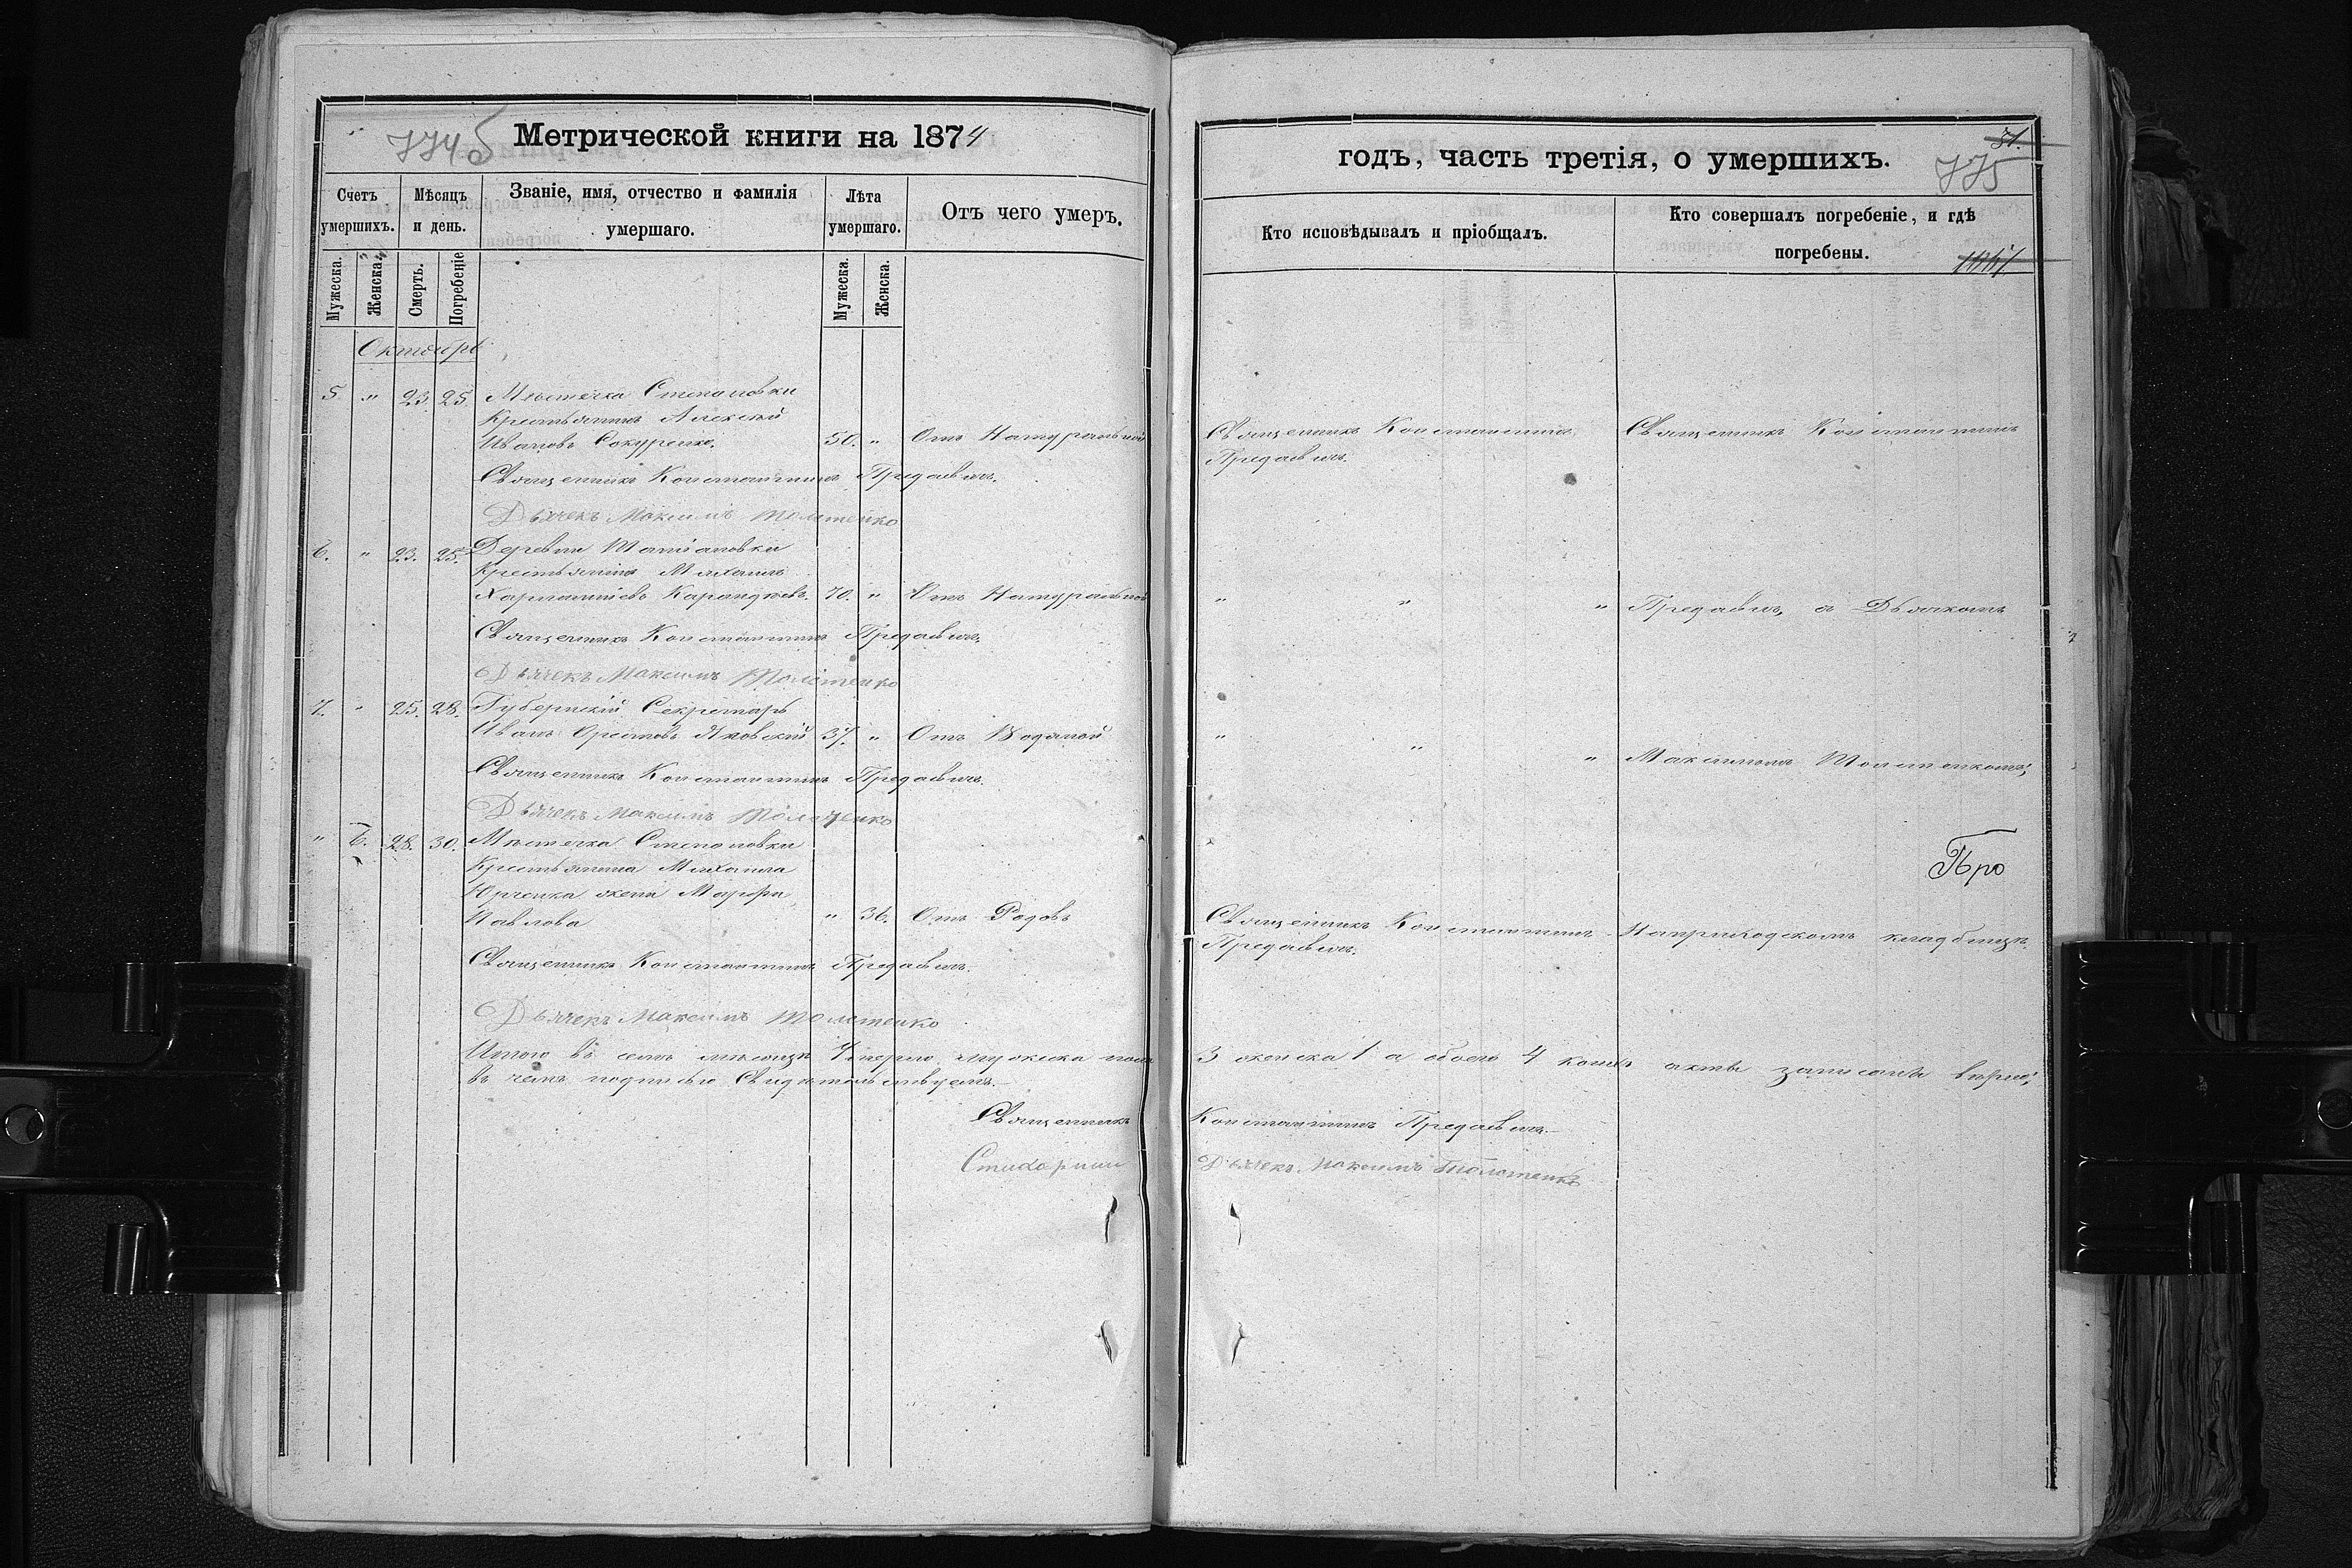 774б Метрической книги на 1874
Счетъ умершихъ.
Мѣсяцъ и день.
Званіе, имя, отчество и фамилія умершаго.
Лѣта умершаго.
Отъ чего умеръ.
Мужеска. Женска. Смерть. Погребеніе Мужеска. Женска.
Октябрь
5. " 23. 25. Мѣстечка Степановки
Крестьянинъ Алексѣй
Ивановъ Сокуренко. 50. " Отъ Натуральной
Священникъ Константинъ Предаевичъ.
Дьячекъ Максимъ Толстенко
6. " 23. 25. Деревни
Крестьянинъ Михаилъ
Харлампіевъ 70. " Отъ Натуральной
Священникъ Константинъ Предаевичъ.
Дьячекъ Максимъ Толстенко
7. " 25. 28. Губернскій Секретарь
Иванъ Орестовъ 37. " Отъ Водяной
Священникъ Константинъ Предаевичъ.
Дьячекъ Максимъ Толстенко
" 6. 28. 30. Мѣстечка Степановки
Крестьянина Михаила
Юрченка жена Марфа
Павлова " 36. Отъ Родовъ
Священникъ Константинъ Предаевичъ.
Дьячекъ Максимъ Толстенко
Итого въ семъ мѣсяцѣ умерло мужеска пола
въ чемъ подписью Свидѣтельствуемъ.
Священникъ
Стихарный
31.
годъ, часть третія, о умершихъ. 775
Кто исповѣдывалъ и пріобщалъ.
Кто совершалъ погребеніе, и гдѣ погребены.
Священникъ Константинъ Священникъ Константинъ
Предаевичъ.
" " " Предаевичъ, съ Дьячкомъ
" " " Максимомъ Толстенкомъ,
Про
Священникъ Константинъ На приходскомъ кладбищѣ.
Предаевичъ.
3 женска 1 а обоего 4 акты записаны вѣрно,
Константинъ Предаевичъ
Дьячекъ Максимъ Толстенко